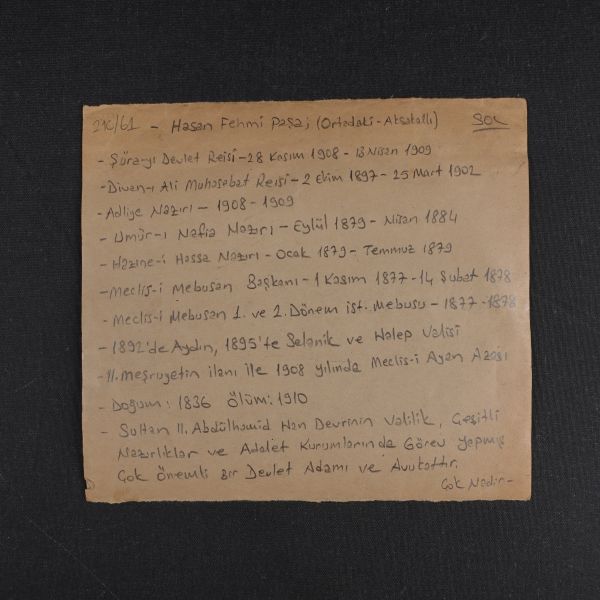 210/61 - Hasan Fehmi Paşa; (Ortadaki - Aksakallı) SOL
- Şûra-yı Devlet Reisi - 28 Kasım 1908 - 13 Nisan 1909
- Divan-ı Ali Muhasebat Reisi - 2 Ekim 1897 - 25 Mart 1902
- Adliye Nazırı - 1908 - 1909
- Umûr-ı Nafia Nazırı - Eylül 1879 - Nisan 1884
- Hazine-i Hassa Nazırı - Ocak 1879 - Temmuz 1879
- Meclis-i Mebusan Başkanı - 1 Kasım 1877 - 14 Şubat 1878
- Meclis-i Mebusan 1. ve 2. Dönem işt. Mebusu - 1877 - 1878
- 1892'de Aydın, 1895'te Selanik ve Halep Valisi
- II. Meşruyetin ilanı ile 1908 yılında Meclis-i Ayan Azası
- Doğum: 1836 Ölüm: 1910
- Sultan II. Abdülhamid Han Devrinin Valilik, Çeşitli
Nazırlıklar ve Adalet Kurumlarında Görev Yapmış
Çok Önemli Bir Devlet Adamı ve Avukattır.
Çok Nadir -